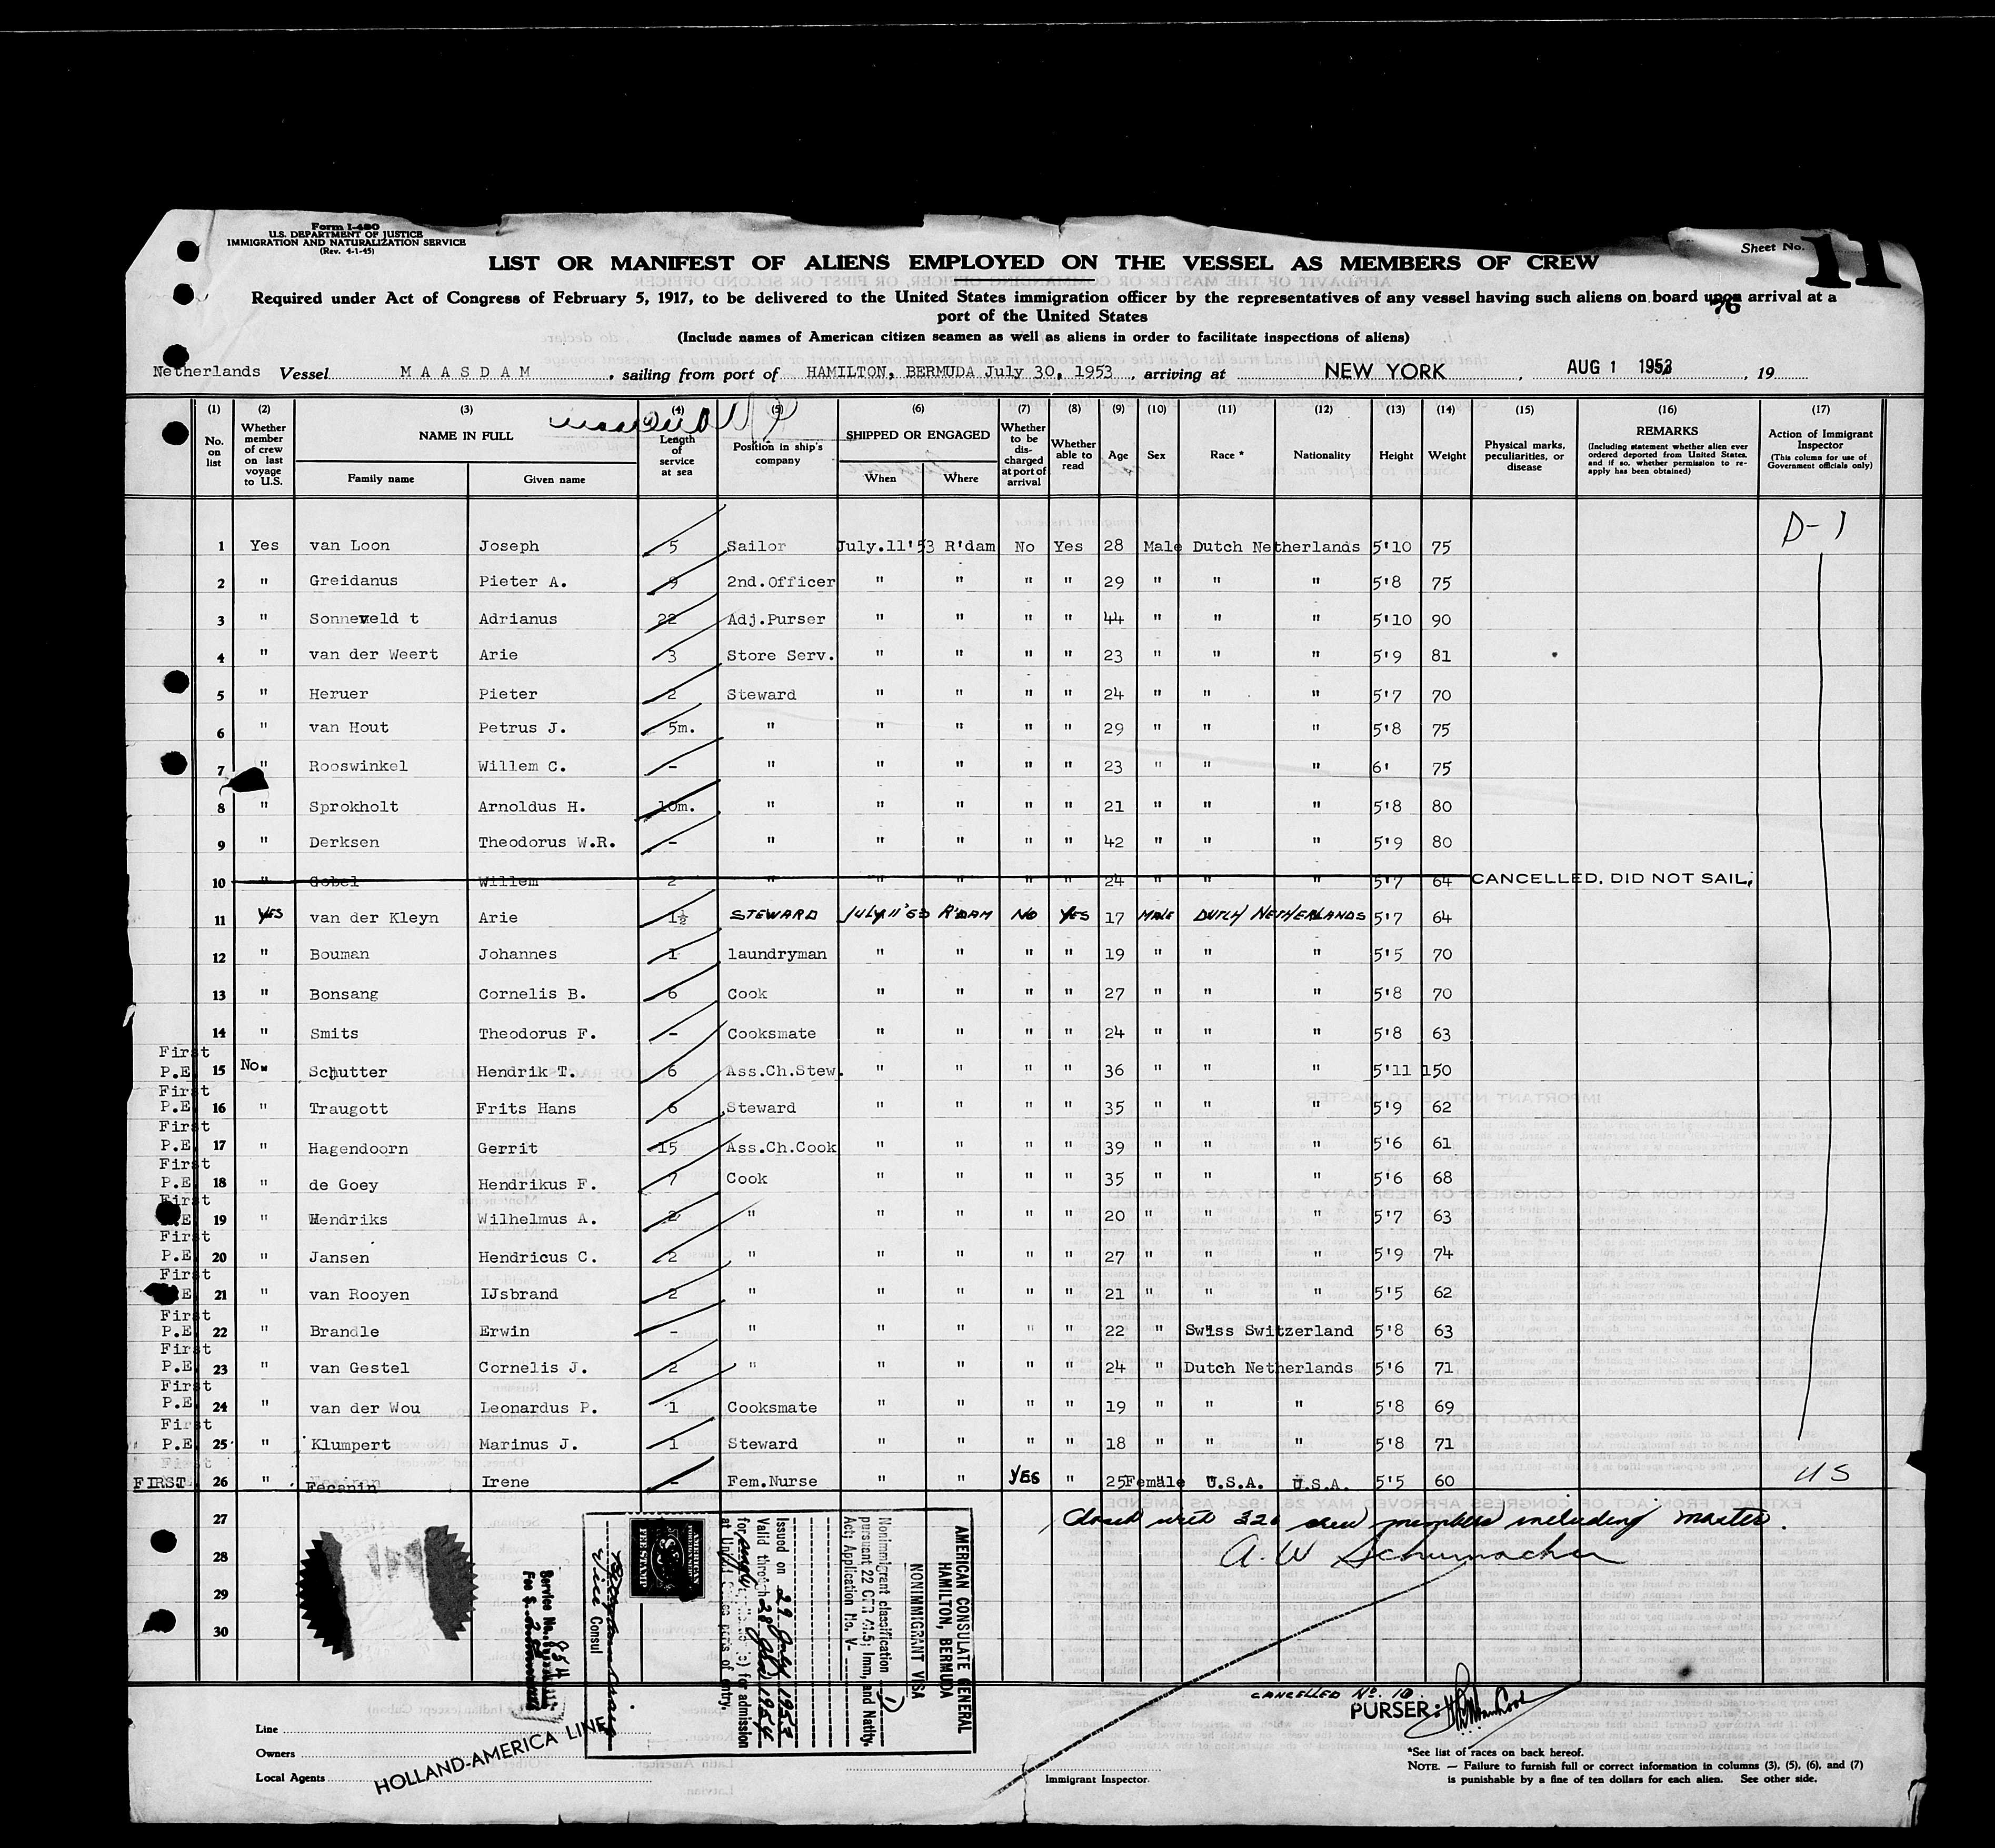 Form I-480
U.S. DEPARTMENT OF JUSTICE
IMMIGRATION AND NATURALIZATION SERVICE
(Rev. 4-1-45)
Sheet No. 11
LIST OR MANIFEST OF ALIENS EMPLOYED ON THE VESSEL AS MEMBERS OF CREW
Required under Act of Congress of February 5, 1917, to be delivered to the United States immigration officer by the representatives of any vessel having such aliens on board upon arrival at a
port of the United States
76
(Include names of American citizen seamen as well as aliens in order to facilitate inspections of aliens)
Netherlands Vessel MAASDAM, sailing from port of HAMILTON, BERMUDA July 30, 1953, arriving at NEW YORK, AUG 1 1953, 19
(1) (2) (3) (4) (5) (6) (7) (8) (9) (10) (11) (12) (13) (14) (15) (16) (17)
No. on list
Whether member of crew on last voyage to U.S.
NAME IN FULL
Family name Given name
Length of service at sea
Position in ship's company
SHIPPED OR ENGAGED
When Where
Whether to be discharged at port of arrival
Whether able to read
Age Sex Race * Nationality Height Weight
Physical marks, peculiarities, or disease
REMARKS
(Including statement whether alien ever ordered deported from United States, and if so, whether permission to re-apply has been obtained)
Action of Immigrant Inspector
(This column for use of Government officials only)
D-1
1 Yes van Loon Joseph 5 Sailor July.11'53 R'dam No Yes 28 Male Dutch Netherlands 5'10 75
2 " Greidanus Pieter A. 9 2nd.Officer " " " " 29 " " " 5'8 75
3 " Sonneveld t Adrianus 22 Adj.Purser " " " " 44 " " " 5'10 90
4 " van der Weert Arie 3 Store Serv. " " " " 23 " " " 5'9 81
5 " Heruer Pieter 2 Steward " " " " 24 " " " 5'7 70
6 " van Hout Petrus J. 5m. " " " " " 29 " " " 5'8 75
7 " Rooswinkel Willem C. - " " " " " 23 " " " 6' 75
8 " Sprokholt Arnoldus H. 10m. " " " " " 21 " " " 5'8 80
9 " Derksen Theodorus W.R. - " " " " " 42 " " " 5'9 80
10 " Gobel Willem 2 " " " " " 24 " " " 5'7 64 CANCELLED. DID NOT SAIL.
11 YES van der Kleyn Arie 1½ STEWARD JULY 11'53 R'DAM NO YES 17 MALE DUTCH NETHERLANDS 5'7 64
12 " Bouman Johannes 1 laundryman " " " " 19 " " " 5'5 70
13 " Bonsang Cornelis B. 6 Cook " " " " 27 " " " 5'8 70
14 " Smits Theodorus F. - Cooksmate " " " " 24 " " " 5'8 63
First
P.E. 15 No. Schutter Hendrik T. 6 Ass.Ch.Stew. " " " " 36 " " " 5'11 150
First
P.E. 16 " Traugott Frits Hans 6 Steward " " " " 35 " " " 5'9 62
First
P.E. 17 " Hagendoorn Gerrit 15 Ass.Ch.Cook " " " " 39 " " " 5'6 61
First
P.E. 18 " de Goey Hendrikus F. 7 Cook " " " " 35 " " " 5'6 68
First
P.E. 19 " Hendriks Wilhelmus A. 2 " " " " " 20 " " " 5'7 63
First
P.E. 20 " Jansen Hendricus C. 2 " " " " " 27 " " " 5'9 74
First
P.E. 21 " van Rooyen IJsbrand 2 " " " " " 21 " " " 5'5 62
First
P.E. 22 " Brandle Erwin - " " " " " 22 " Swiss Switzerland 5'8 63
First
P.E. 23 " van Gestel Cornelis J. 2 " " " " " 24 " Dutch Netherlands 5'6 71
First
P.E. 24 " van der Wou Leonardus P. 1 Cooksmate " " " " 19 " " " 5'8 69
First
P.E. 25 " Klumpert Marinus J. 1 Steward " " " " 18 " " " 5'8 71
First
FIRST 26 " Fecanin Irene - Fem.Nurse " " YES " 25 Female U.S.A. U.S.A. 5'5 60 US
27
28
29
30
Closed with 326 crew members including master.
A. W Schumacher
AMERICAN CONSULATE GENERAL
HAMILTON, BERMUDA
NONIMMIGRANT VISA
Nonimmigrant classification D
pursuant 22 CFR 41.5; Imm. and Natlty.
Act; Application No. V-
Issued on 29 July 1953
Valid through 28 Jan 1954
for single application(s) for admission
at United States ports of entry.
AMERICAN
FOREIGN SERVICE
FEE STAMP
Vice Consul
Service No. 954
Fee $
CANCELLED No. 10
PURSER:
Line
Owners
Local Agents
HOLLAND-AMERICA LINE
Immigrant Inspector.
*See list of races on back hereof.
NOTE. — Failure to furnish full or correct information in columns (3), (5), (6), and (7)
is punishable by a fine of ten dollars for each alien. See other side.